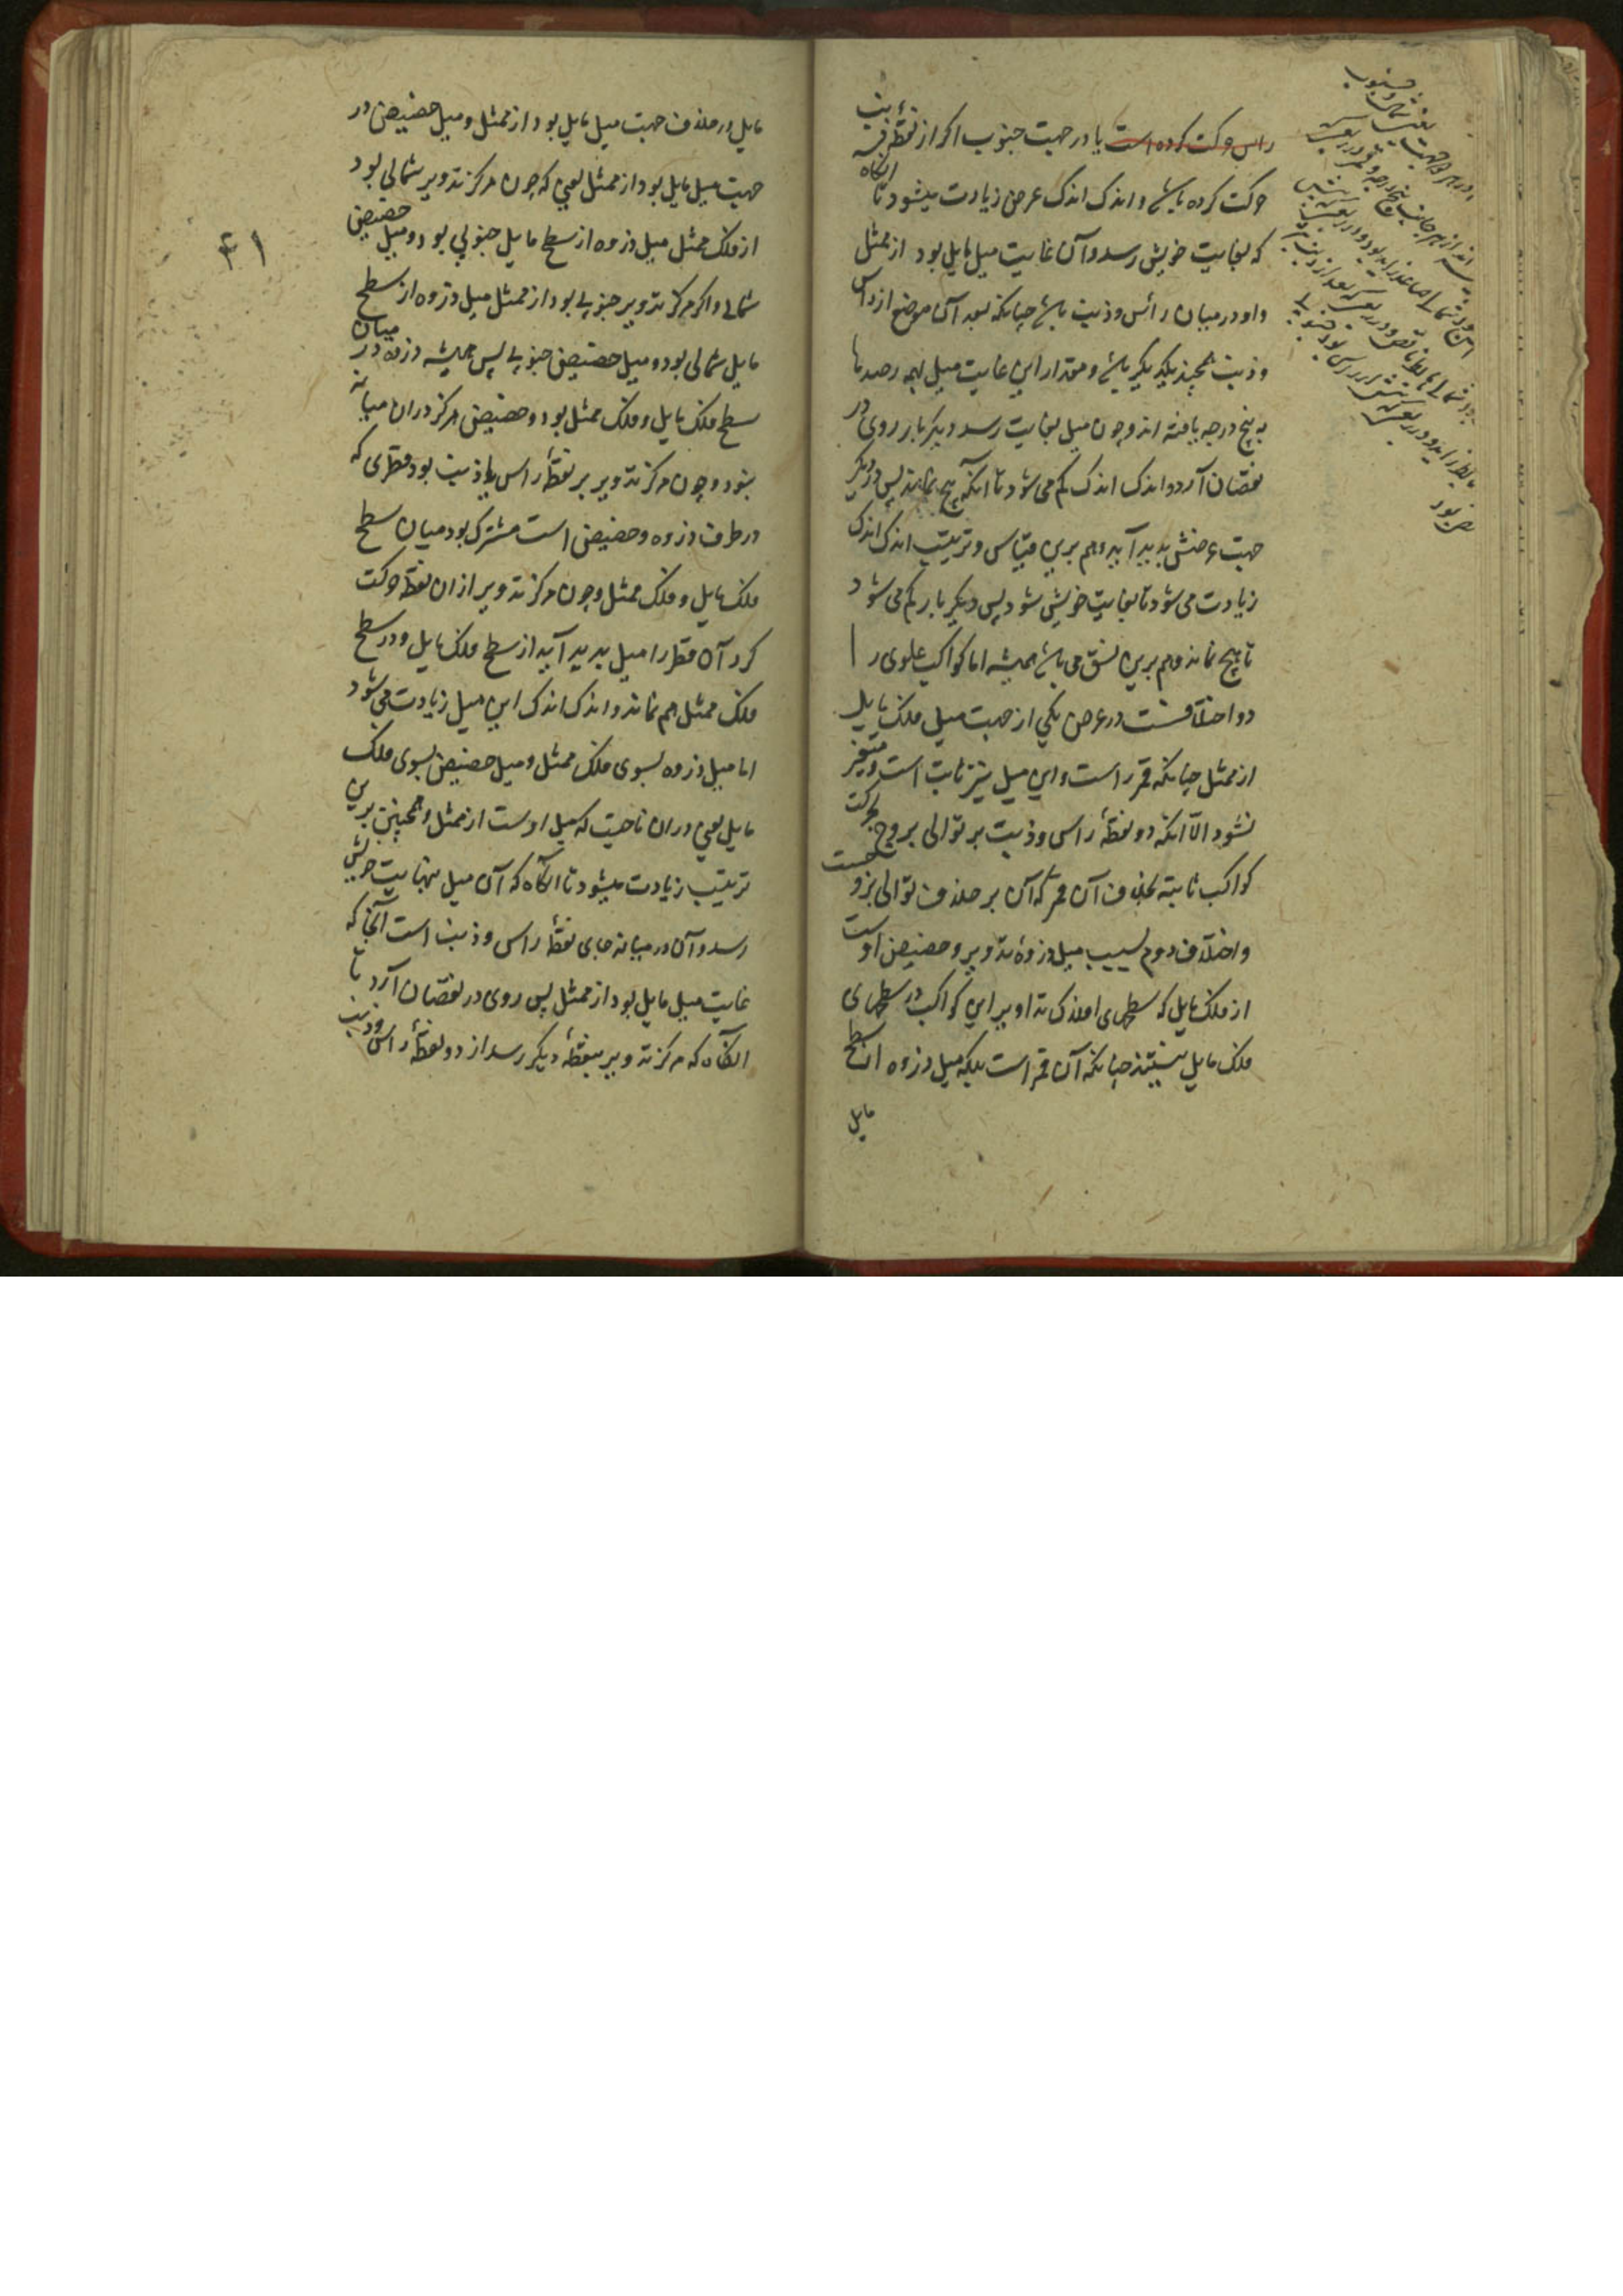 راس حرکت کرده است یا در جهت جنوب اکر از نقطهٔ ذنب
حرکت کرده باشد و اندک اندک عرض زیادت میشود تا انکاه
که بغایت خویش رسد و آن غایت میل مایل بود از ممثل
و او در میان راس و ذنب باشد چنانکه بعد آن موضع از راس
و ذنب همچند یکدیکر باشد و مقدار این غایت میل بهمه رصدها
به پنج درجه یافته اند و چون میل بغایت رسد دیکر بار روی در
نقصان آرد و اندک اندک کم می شود تا آنکه هیچ نماند پس در دیکر
جهت عرضش بدید آید و هم برین قیاس و ترتیب اندک اندک
زیادت می شود تا بغایت خویش شود پس دیکر بار کم می شود
تا هیچ نماند و هم برین نسق می باشد همیشه اما کواکب علوی را
دو اختلافست در عرض یکی از جهت میل فلک مایل
از ممثل چنانکه قمر راست و این میل نیز ثابت است و متغیر
نشود الّا آنکه دو نقطهٔ راس و ذنب بر توالی بروج بحرکت
کواکب ثابته بخلاف آن قمر که آن بر خلاف توالی بروجست
و اختلاف دوم بسبب میل ذروهٔ تدویر و حضیض اوست
از فلک مایل که سطحهای افلاک تداویر این کواکب در سطحهای
فلک مایل نیستند چنانکه آن قمر است بلکه میل ذروه از سطح
مایل
مایل در خلاف جهت میل مایل بود از ممثل و میل حضیض در
جهت میل مایل بود از ممثل یعنی که چون مرکز تدویر شمالی بود
از فلک ممثل میل ذروه از سطح مایل جنوبی بود و میل حضیض
شمالی و اکر مرکز تدویر جنوبی بود از ممثل میل ذروه از سطح
مایل شمالی بود و میل حضیض جنوبی پس همیشه ذروه در میان
سطح فلک مایل و فلک ممثل بود و حضیض هرکز دران میانه
نبود و چون مرکز تدویر بر نقطهٔ راس یا ذنب بود قطری که
در طرف ذروه و حضیض است مشترک بود میان سطح
فلک مایل و فلک ممثل و چون مرکز تدویر از ان نقطه حرکت
کرد آن قطر را میل بدید آید از سطح فلک مایل و در سطح
فلک ممثل هم نماند و اندک اندک این میل زیادت می شود
اما میل ذروه بسوی فلک ممثل و میل حضیض بسوی فلک
مایل یعنی در ان ناحیت که میل اوست از ممثل و همچنین برین
ترتیب زیادت میشود تا انکاه که آن میل بنهایت خویش
رسد و آن در میانه جای نقطهٔ راس و ذنب است آنجا که
غایت میل مایل بود از ممثل پس روی در نقصان آرد تا
انکاه که مرکز تدویر بنقطهٔ دیکر رسد از دو نقطهٔ راس و ذنب